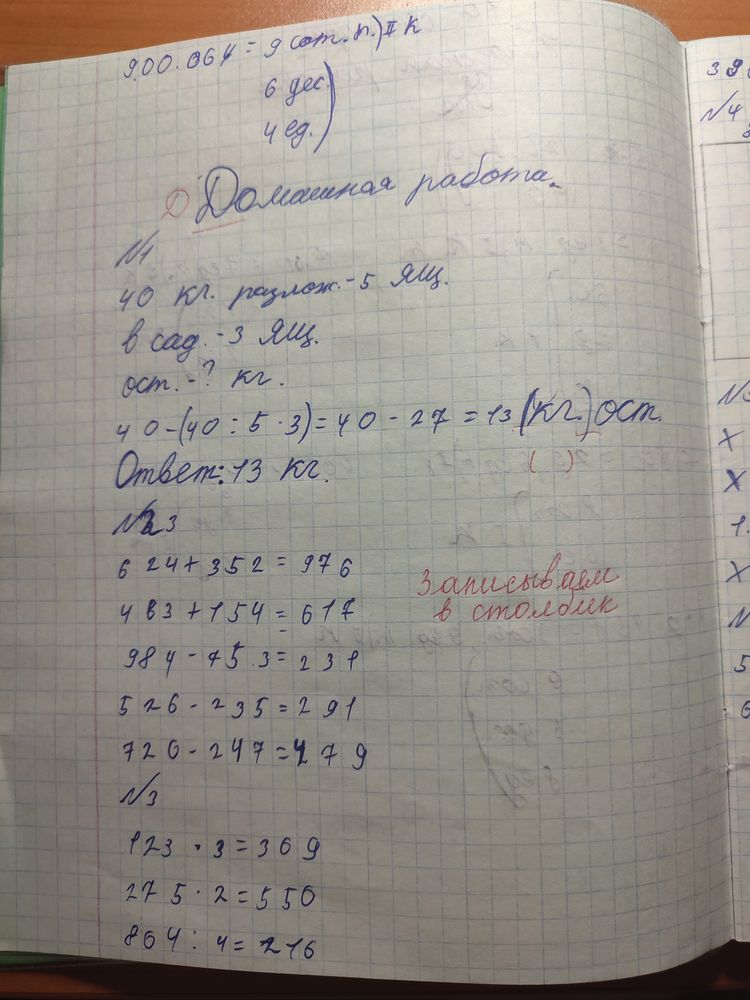 900.064 = 9 сот. п.) II к
6 дес.
4 ед.
Д Домашная работа.
№1
40 кг. разлож. - 5 ящ.
в сад. - 3 ящ.
ост. - ? кг.
40-(40:5·3)=40-27=13(кг.)ост.
( )
Ответ: 13 кг.
№3
624+352=976
463+154=617
984-753=231
526-235=291
726-247=479
Записываем
в столбик
№3
123·3=369
275·2=550
864:4=216
39
№4